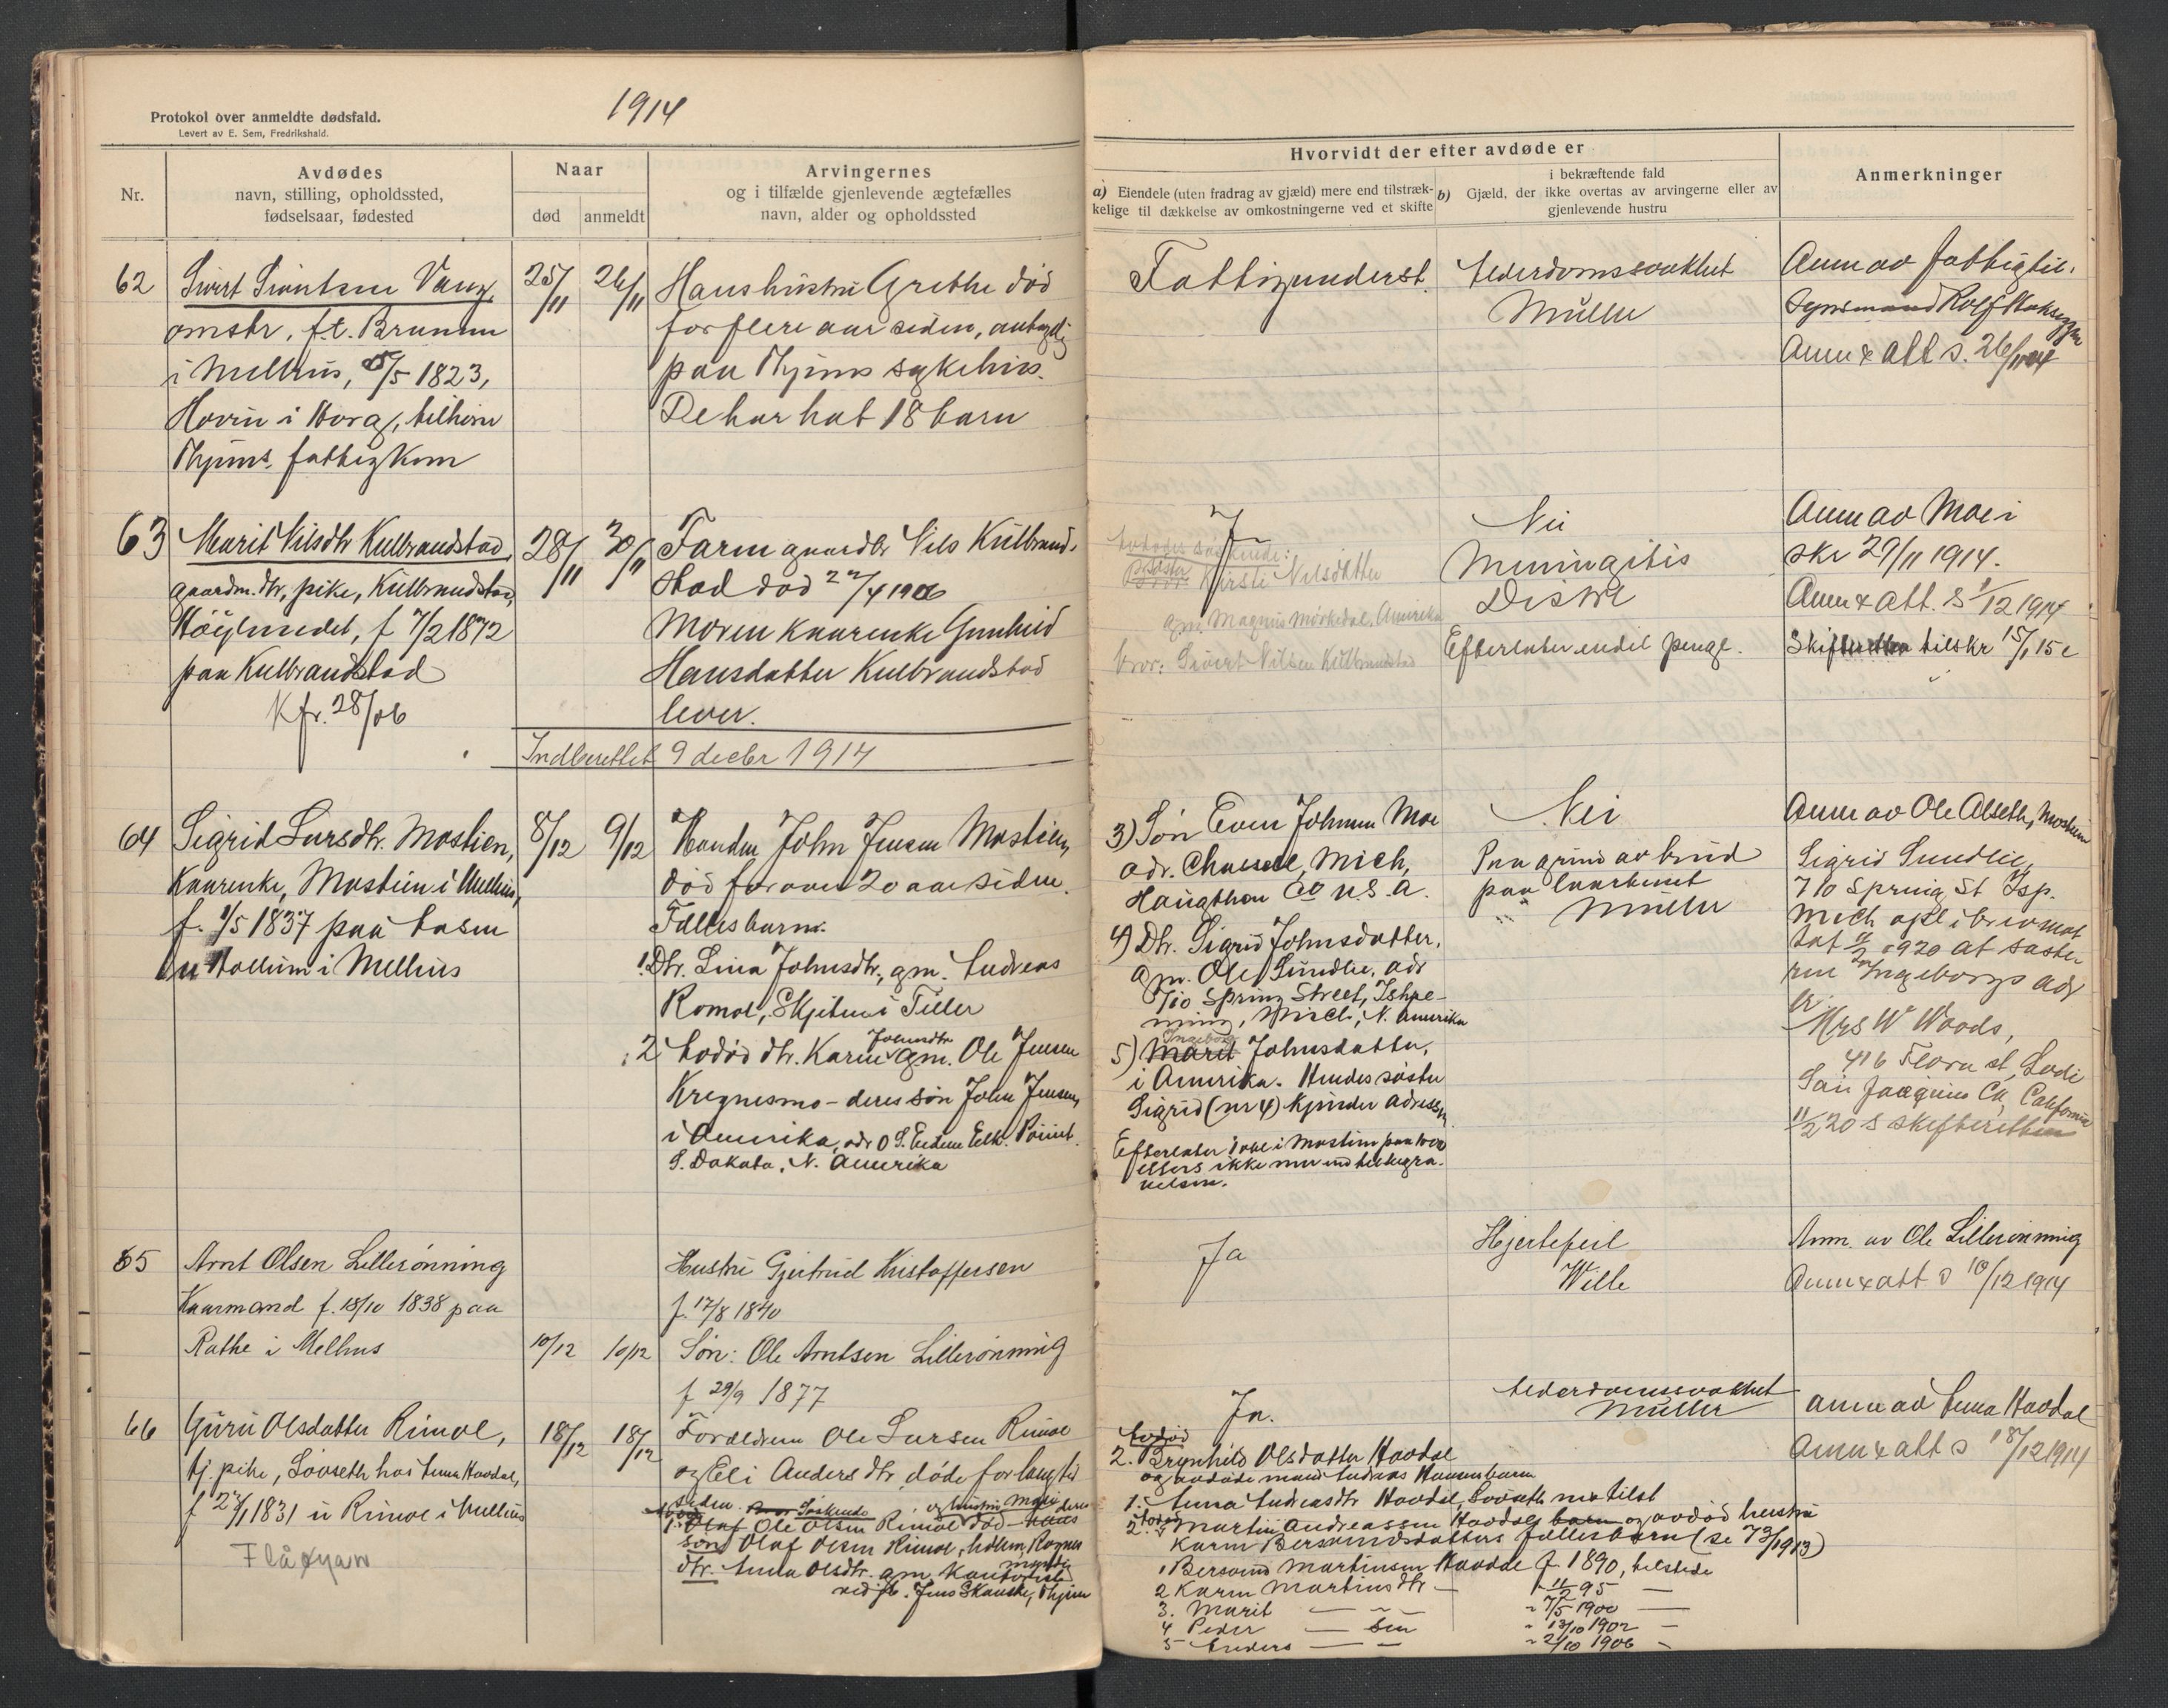 1914
Protokol over anmeldte dødsfald.
Levert av E. Sem, Fredrikshald.
Nr.
Avdødes
navn, stilling, opholdssted,
fødselsaar, fødested
Naar
død
anmeldt
Arvingernes
og i tilfælde gjenlevende ægtefælles
navn, alder og opholdssted
62
Sivert Sivertsen Vang,
omstr, f.t. Brunmu
i Melhus, /5 1823,
Hovin i Horg, tilhører
Thjems fattigkom
25/11
26/11
Hans hustru Grethe død
for flere aar siden, antagelig
paa Thjems sykehus.
De har hat 18 barn
63
Marit Nilsdtr Kulbrandstad,
gaardm.dtr, pike, Kulbrandstad,
Höylandet, f 7/2 1872
paa Kulbrandstad
Kfr. 28/06
28/11
30/11
Faren gaardbr Nils Kulbrand-
stad død 2/4 1906
Moren kaarenke Gunhild
Hansdatter Kulbrandstad
lever.
Indberettet 9 decbr 1914
64
Sigrid Larsdtr. Mostien,
Kaarenke, Mostien i Melhus,
f. 1/5 1837 paa Aasen
u Hollum i Melhus
8/12
9/12
Manden John Jensen Mostien,
død for over 20 aar siden.
Fælles barn:
1. Dtr. Lina Johnsdtr, gm. Andreas
Romol, Skjetnen i Tiller
2 Avdød dtr. Karen Johnsdtr gm. Ole Jensen
Kregnesmo - deres søn John Jensen,
i Amerika, adr O S. Enden Elk. Point.
S. Dakota, N. Amerika
65
Arnt Olsen Lillerönning
Kaarmand f. 18/10 1838 paa
Rathe i Melhus
10/12
10/12
Hustru Gjertrud Kristoffersen
f. 17/8 1840
Søn: Ole Arntsen Lillerönning
f 29/9 1877
66
Guru Olsdatter Rimol,
tj. pike, Løvseth hos Anna Havdal,
f 2/1 1831 u Rimol i Melhus
Flåøyan
18/12
18/12
Forældrene Ole Larsen Rimol
og Eli Andersdtr døde for lang tid
siden. Søskende
1. Olaf Ole Olsen Rimol død og hustru Mali deres
søn Olaf Olsen Rimol, Holem, Rognes
dtr. Anna Olsdtr. gm.
ved fb. Jens Skanke, Thjem
Hvorvidt der efter avdøde er
a) Eiendele (uten fradrag av gjæld) mere end tilstræk-
kelige til dækkelse av omkostningerne ved et skifte
i bekræftende fald
b) Gjæld, der ikke overtas av arvingerne eller av
gjenlevende hustru
Anmerkninger
Fattigunderst.
Alderdomssvakhet
Müller
Anm av fattigtil.
synsmand Rolf
Anm & att s. 26/11
J
Avdødes søskende:
søster Kirsti Nilsdatter
gm. Magnus Mörkedal, Amerika
bror: Sivert Nilsen Kulbrandstad
Nei
Meningitis
Efterlater endel penge.
Anm av Moe i
skr 29/11 1914.
Anm & att. s 1/12 1914
Skifteretten tilskr 15/1 15
3) Søn Even Johnsen Moe
adr. Chassell, Mich,
Haugthon Co U.S.A.
4) Dtr. Sigrid Johnsdatter,
gm. Ole Sundlie, adr
710 Spring Street, Ishpe-
ming, Mich, N. Amerika
5) Marit Ingeborg Johnsdatter,
i Amerika. Hendes søster
Sigrid (nr 4) kjender adressen.
Efterlater i Mostien paa 1000
ellers ikke mer end til begra-
velsen.
Nei
Paa grund av brud
paa laarbenet
Müller
Anm av Ole Alseth, Mostien
Sigrid Sundlie,
710 Spring St Isp.
Mich opl i brev mot
tat 1920 at søste-
ren Ingeborgs adr
er.
Mrs W Woods,
416 Flora st, Lodi
San Joaquin Co, California
11/2 20 s skifteretten
Ja
Hjertefeil
Wille
Anm. av Ole Lillerönning
Anm & att s 10/12 1914
Ja.
Alderdomssvakhet
Müller
Anm av Anna Havdal
Anm & att s 18/12 1914
Avdød
2. Brynhild Olsdatter Havdal
og avdøde mand Andreas Hansens barn
1. Anna Andreasdtr Havdal, Løvseth
Avdød
2. Martin Andreassen Havdal og avdød hustru
Karen Bersvendsdatters fællesbarn (se 73/1913)
1 Bersvend Martinsen Havdal f. 1890, tilstede
2 Karen Martinsdtr - 11/2 95 -
3. Marit - - 7/5 1900 -
4 Peder - sen - 13/10 1902 -
5 Anders - - - 2/10 1906 -